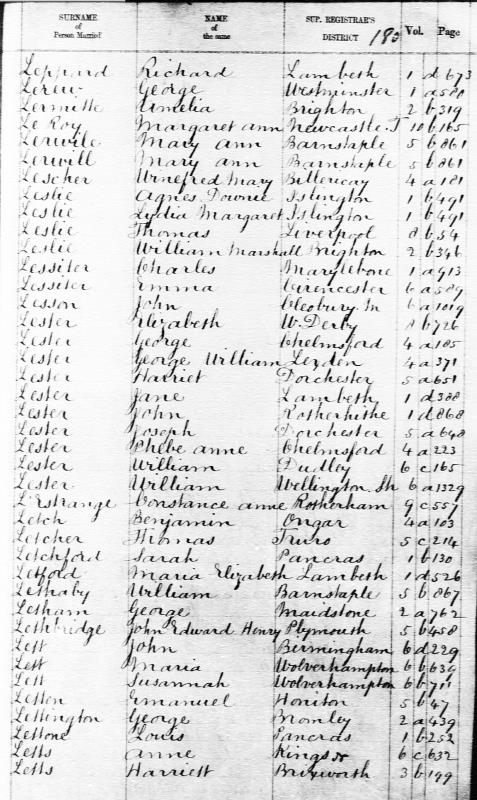 SURNAME of Person Married NAME of the same SUP. REGISTRAR'S DISTRICT 183 Vol. Page
Leppard Richard Lambeth 1 d 673
Lerew George Westminster 1 a 588
Lermitte Amelia Brighton 2 b 319
Le Roy Margaret ann Newcastle. T 10 b 165
Lerwile Mary ann Barnstaple 5 b 861
Lerwill Mary ann Barnstaple 5 b 861
Lescher Winefred Mary Billericay 4 a 181
Leslie Agnes Downie Islington 1 b 491
Leslie Lydia Margaret Islington 1 b 491
Leslie Thomas Liverpool 8 b 54
Leslie William Marshall Brighton 2 b 346
Lessiter Charles Marylebone 1 a 913
Lessiter Emma Cirencester 6 a 589
Lesson John Cleobury. M 6 a 1019
Lester Elizabeth W. Derby 8 b 726
Lester George Chelmsford 4 a 185
Lester George William Lexden 4 a 371
Lester Harriet Dorchester 5 a 651
Lester Jane Lambeth 1 d 388
Lester John Rotherhithe 1 d 868
Lester Joseph Dorchester 5 a 648
Lester Phebe anne Chelmsford 4 a 223
Lester William Dudley 6 c 165
Lester William Wellington. Sh 6 a 1329
L'Estrange Constance anne Rotherham 9 c 557
Letch Benjamin Ongar 4 a 103
Letcher Thomas Truro 5 c 214
Letchford Sarah Pancras 1 b 130
Letfold Maria Elizabeth Lambeth 1 d 526
Lethaby William Barnstaple 5 b 867
Letham George Maidstone 2 a 762
Lethbridge John Edward Henry Plymouth 5 b 458
Lett John Birmingham 6 d 229
Lett Maria Wolverhampton 6 b 639
Lett Susannah Wolverhampton 6 b 711
Letten Emanuel Honiton 5 b 47
Lettington George Bromley 2 a 439
Lettone Louis Pancras 1 b 252
Letts Anne Kings N 6 c 632
Letts Harriett Brixworth 3 b 199